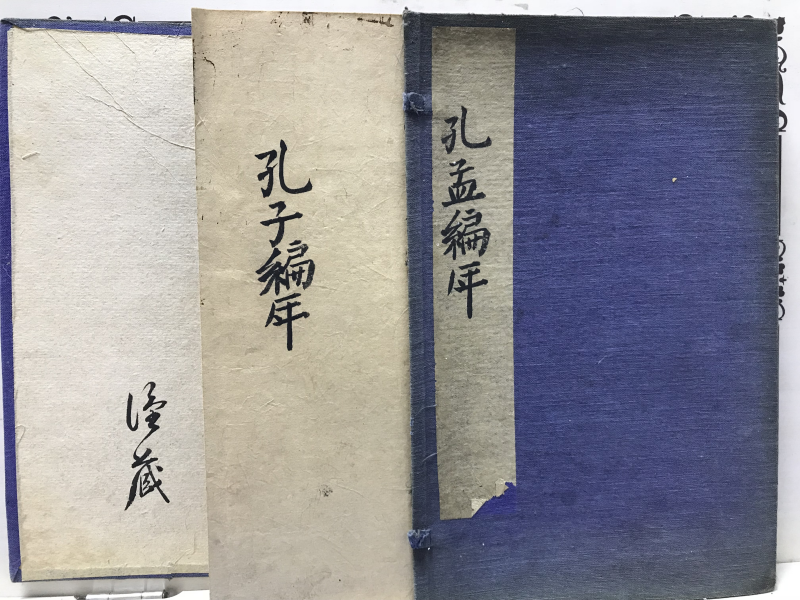 孔孟編年
孔子編年
蔵